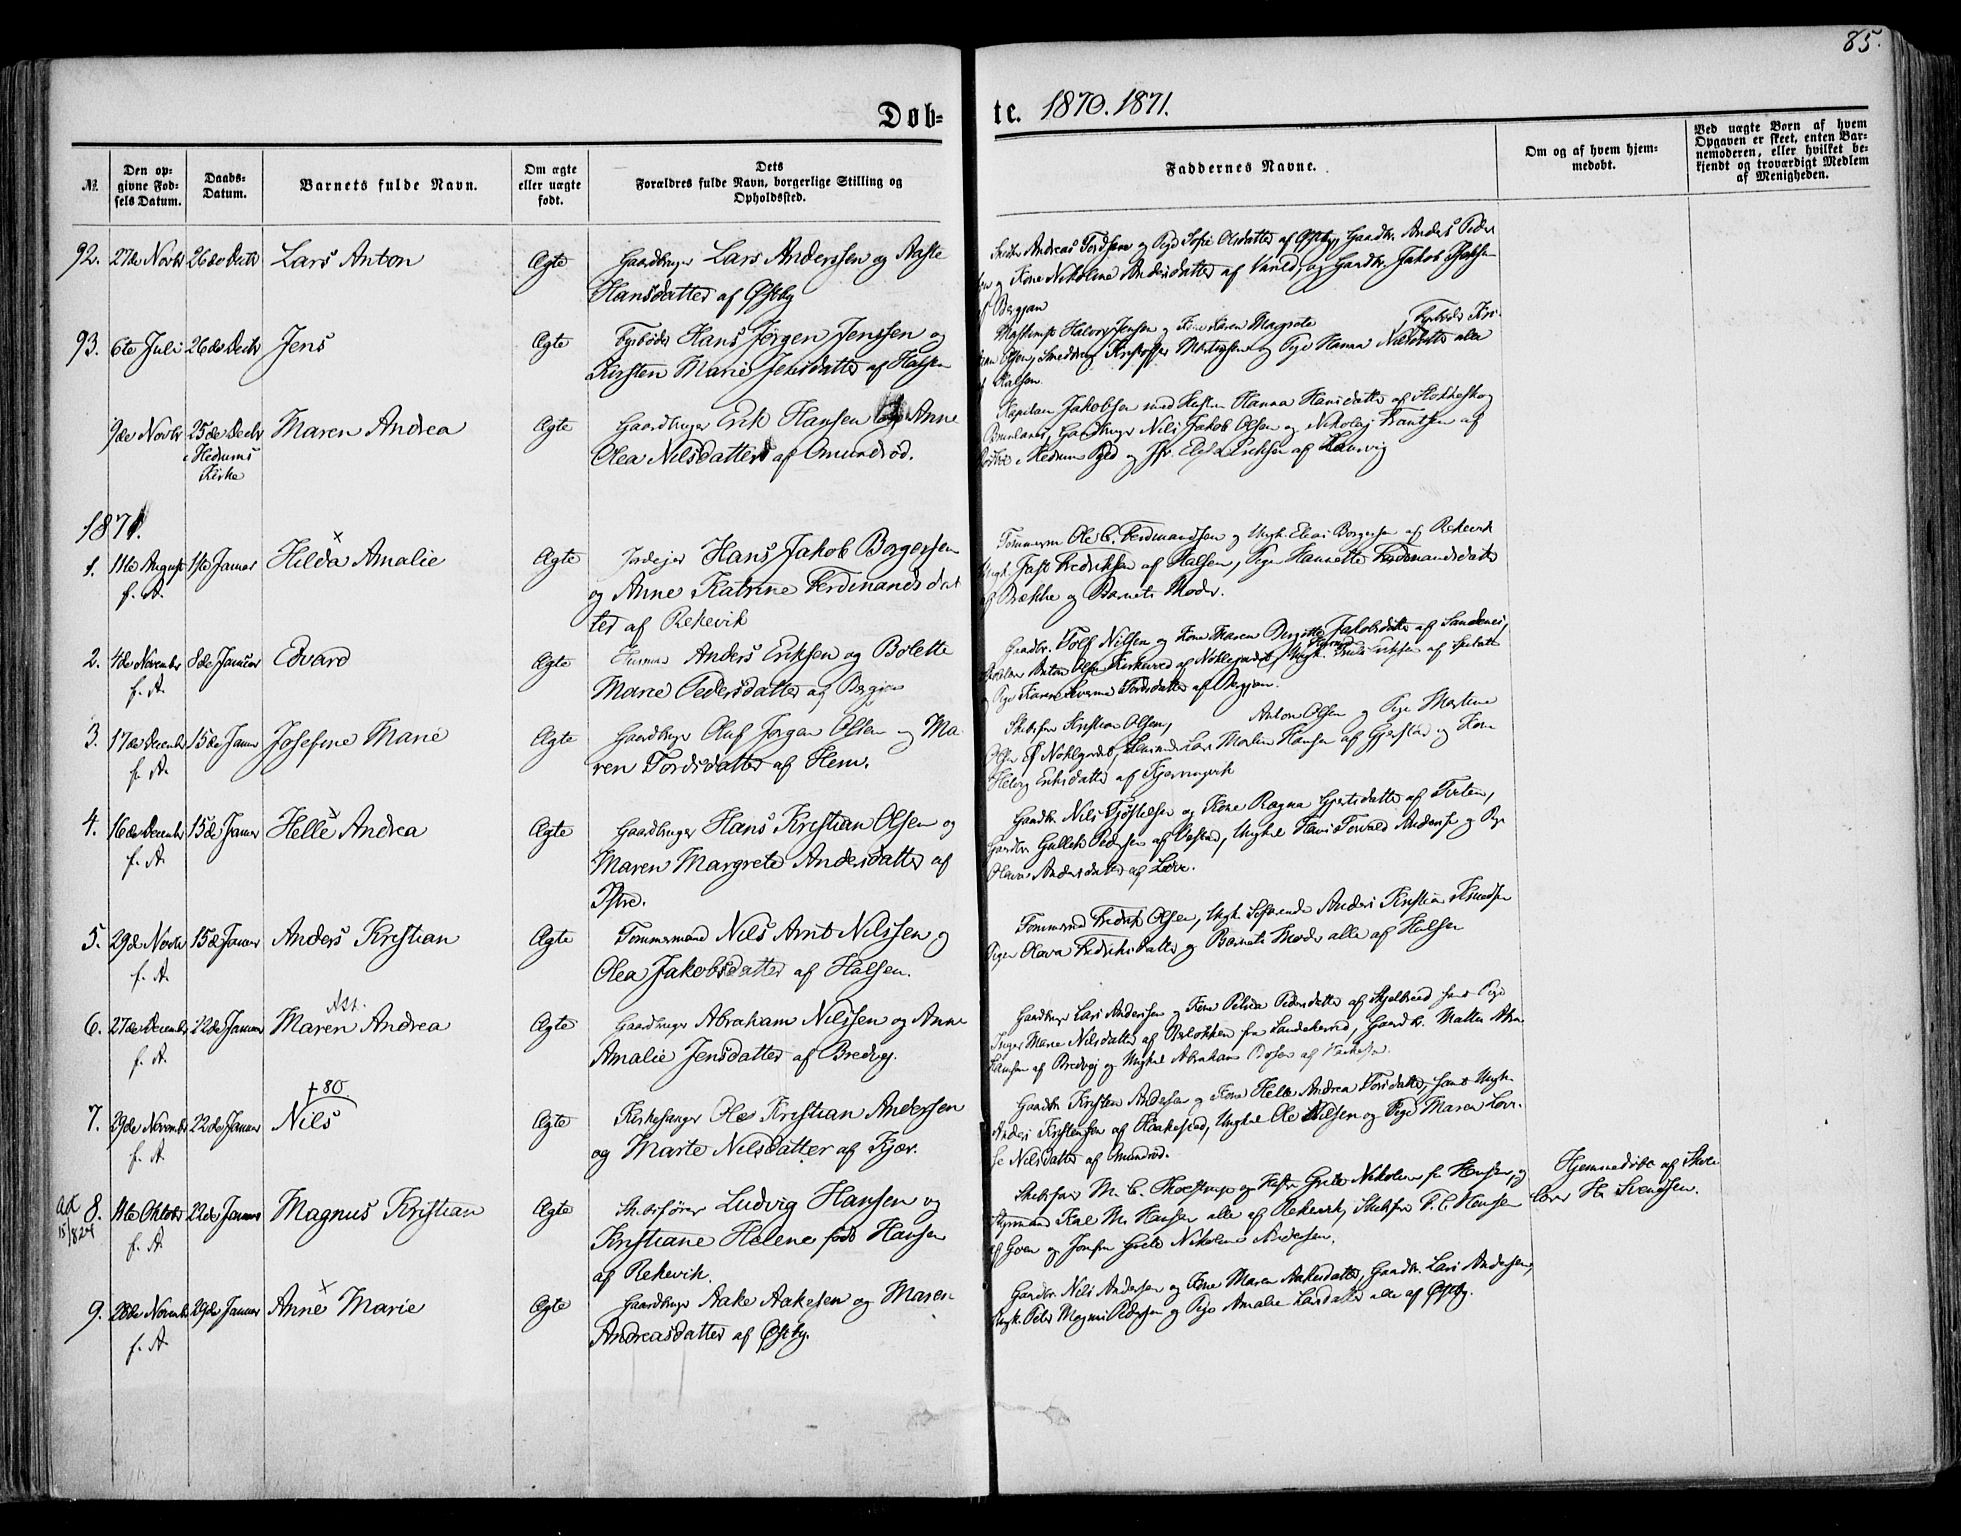 85.
Døb=
te. 1870. 1871.
№.
Den op-
givne Fød-
sels Datum.
Daabs-
Datum.
Barnets fulde Navn.
Om ægte
eller uægte
født.
Dets
Forældres fulde Navn, borgerlige Stilling og
Opholdssted.
Faddernes Navne.
Om og af hvem hjem-
medøbt.
Ved uægte Børn af hvem
Opgaven er skeet, enten Bar-
nemoderen, eller hvilket be-
kjendt og troværdigt Medlem
af Menigheden.
92. 27de Novbr 26de Decbr Lars Anton Ægte Gaardbruger Lars Anderssen og Aaste
Hansdatter af Østby
Andreas Tordsen og Pige Sofie Olsdatter af Østby, Gaardbr. Anders Peder
sen og Kone Nikoline Andersdatter af Varild, og Gaardbr. Jakob
af Bergan
93. 6te Juli 26de Decbr Jens Ægte Fyrbøder Hans Jørgen Jenssen og
Kirsten Marie Jensdatter af Halsen
Maskinist Halvor Jensen og Kone Karen Magrete Fyrbøder Kri-
Kristoffer Martinsen og Pige Hanna Nilsdatter alle
af Halsen.
9de Novbr 25de Decbr Maren Andrea Ægte Gaardbruger Erik Hansen og Anne
i Hedrums
Kirke
Olea Nilsdatter af Omundrød.
Kaptein Jakobsen med Hustru Hanna Hansdatter af Stokkeskog
Brunlanes, Gaardbruger Nils Jakob Olsen og Nikolaj Frantzen af
i Hedrum Pgd og Jfr. Eriksen af Laurvig
1871.
1. 11te August 1ste Januar Hilda Amalie Ægte Jordejer Hans Jakob Borgersen
f. A.
og Anne Katrine Ferdinandsdat
ter af Rekevik
Tømmerm Ole C. Ferdinandsen og Ungk. Elias Borgersen af Rekevik
Ungk. Fredriksen af Halsen, Pige Hannette Ferdinandsdatter
af Brække og Barnets Moder.
2. 4de November 8de Januar Edvard Ægte Anders Eriksen og Bolette
f. A.
Marie Pedersdatter af Bergan
Gaardbr. Rolf Nilsen og Kone Karen Bergitte Jakobsdatter af Sandenes,
Anton Olsen af Nohlegaardet, Ungk. Eriksen af
og Pige Karen Tordsdatter af Bergan.
3. 17de December 15de Januar Josefine Marie Ægte Gaardbruger Oluf Jørgen Olsen og Ma
f. A.
ren Tordsdatter af Hem.
Skibsfør Kristian Olsen, Anton Olsen og Pige Martine
Olsen af Nohlgardet, Lars Martin Hansen af Gjerstad og Kone
Helvig Eriksdatter af Kjerringvik
4. 16de December 15de Januar Helle Andrea Ægte Gaardbruger Hans Kristian Olsen og
f. A.
Maren Margrete Andersdatter af
Istre.
Gaardbr. Nils Kjøstelsen og Kone Ragna Gjertsdatter af Tveten,
Gaardbr. Gullek Pedersen af Vestad, Ungkl Hans Torvald Anderse og Pige
Olava Andersdatter af Løve.
5. 29de Novbr 15de Januar Anders Kristian Ægte Tømmermand Nils Arnt Nilssen og
f. A.
Olea Jakobsdatter af Halsen.
Tømmermd Fredrik Olsen, Ungk. Søfarende Anders Kristian Knudsen
Pigen Olava Fredriksdatter og Barnets Moder alle af Halsen
6. 27de December 22de Januar Maren Andrea Ægte Gaardbruger Abraham Nilssen og Anne
Att.
f. A.
Amalie Jensdatter af Bredvej.
Gaardbruger Lars Anderssen og Kone Petrea Pedersdatter af Skjelbred samt Pige
Inger Marie Nilsdatter af fra Sandeherred, Gaardbr. Mattis Abra
hamsen af Bredvej og Ungkl Abraham
7. 29de Novembr 22de Januar Nils Ægte Kirkesanger Ole Kristian Andersen
+80
f. A.
og Marte Nilsdatter af Kjær.
Gaardbr Kristen Andersen og Kone Helle Andrea Torsdatter, samt Ungk.
Anders Kristensen af Haakestad, Ungkl Ole Nilssen og Pige Maren Lovi-
se Nilsdatter af Amundrød.
ad 15/8 24 8. 4de Oktober 22de Januar Magnus Kristian Ægte Skibsfører Ludvig Hansen og
f. A.
Kristiane Helene født Hansen
af Rekevik.
Skibsfører M. C. og Hustru Grete Nikoline f. Hansen, og
Styrmand Karl M. Hansen alle af Rekevik, Skibsfør P. C. Hansen
af Goen og Jomfru Grete Nikoline Andersen.
Hjemmedøbt af Skole
lærer H. Svendsen.
9. 28de Novembr 29de Januar Anne Marie Ægte Gaardbruger Aake Aakesen og Maren
f. A.
Andreasdatter af Østby.
Gaardbr. Nils Andersen og Kone Maren Aakesdatter, Gaardbr. Lars Andersen,
Ungk. Peter Magnus Pedersen og Pige Amalie Larsdatter alle af Østby.